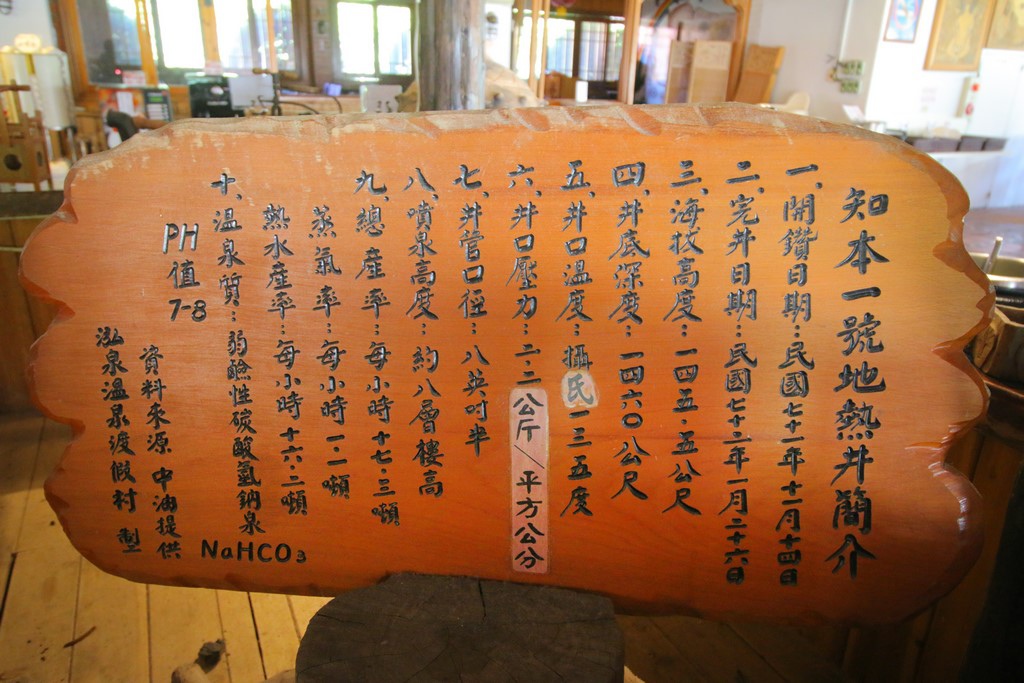 知本一號地熱井簡介
一、開鑽日期：民國七十一年十一月十四日
二、完井日期：民國七十二年一月二十六日
三、海拔高度：一四五．五公尺
四、井底深度：一四六〇公尺
五、井口溫度：攝氏一三五度
六、井口壓力：二二公斤／平方公分
七、井管口徑：八英吋半
八、噴泉高度：約八層樓高
九、總產率：每小時十七．三噸
蒸氣率：每小時一．一噸
熱水產率：每小時十六．二噸
十、溫泉質：弱鹼性碳酸氫鈉泉
NaHCO₃
PH值7-8
資料來源 中油提供
泓泉溫泉渡假村 製